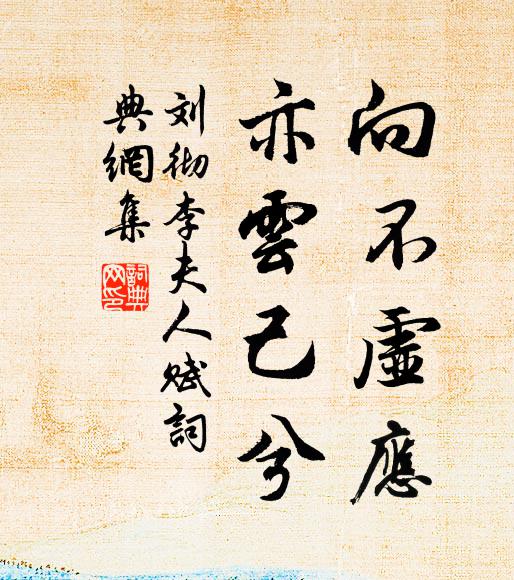 向不虛應
亦雲己兮
刘彻李夫人赋詞
典網集
詞典网印